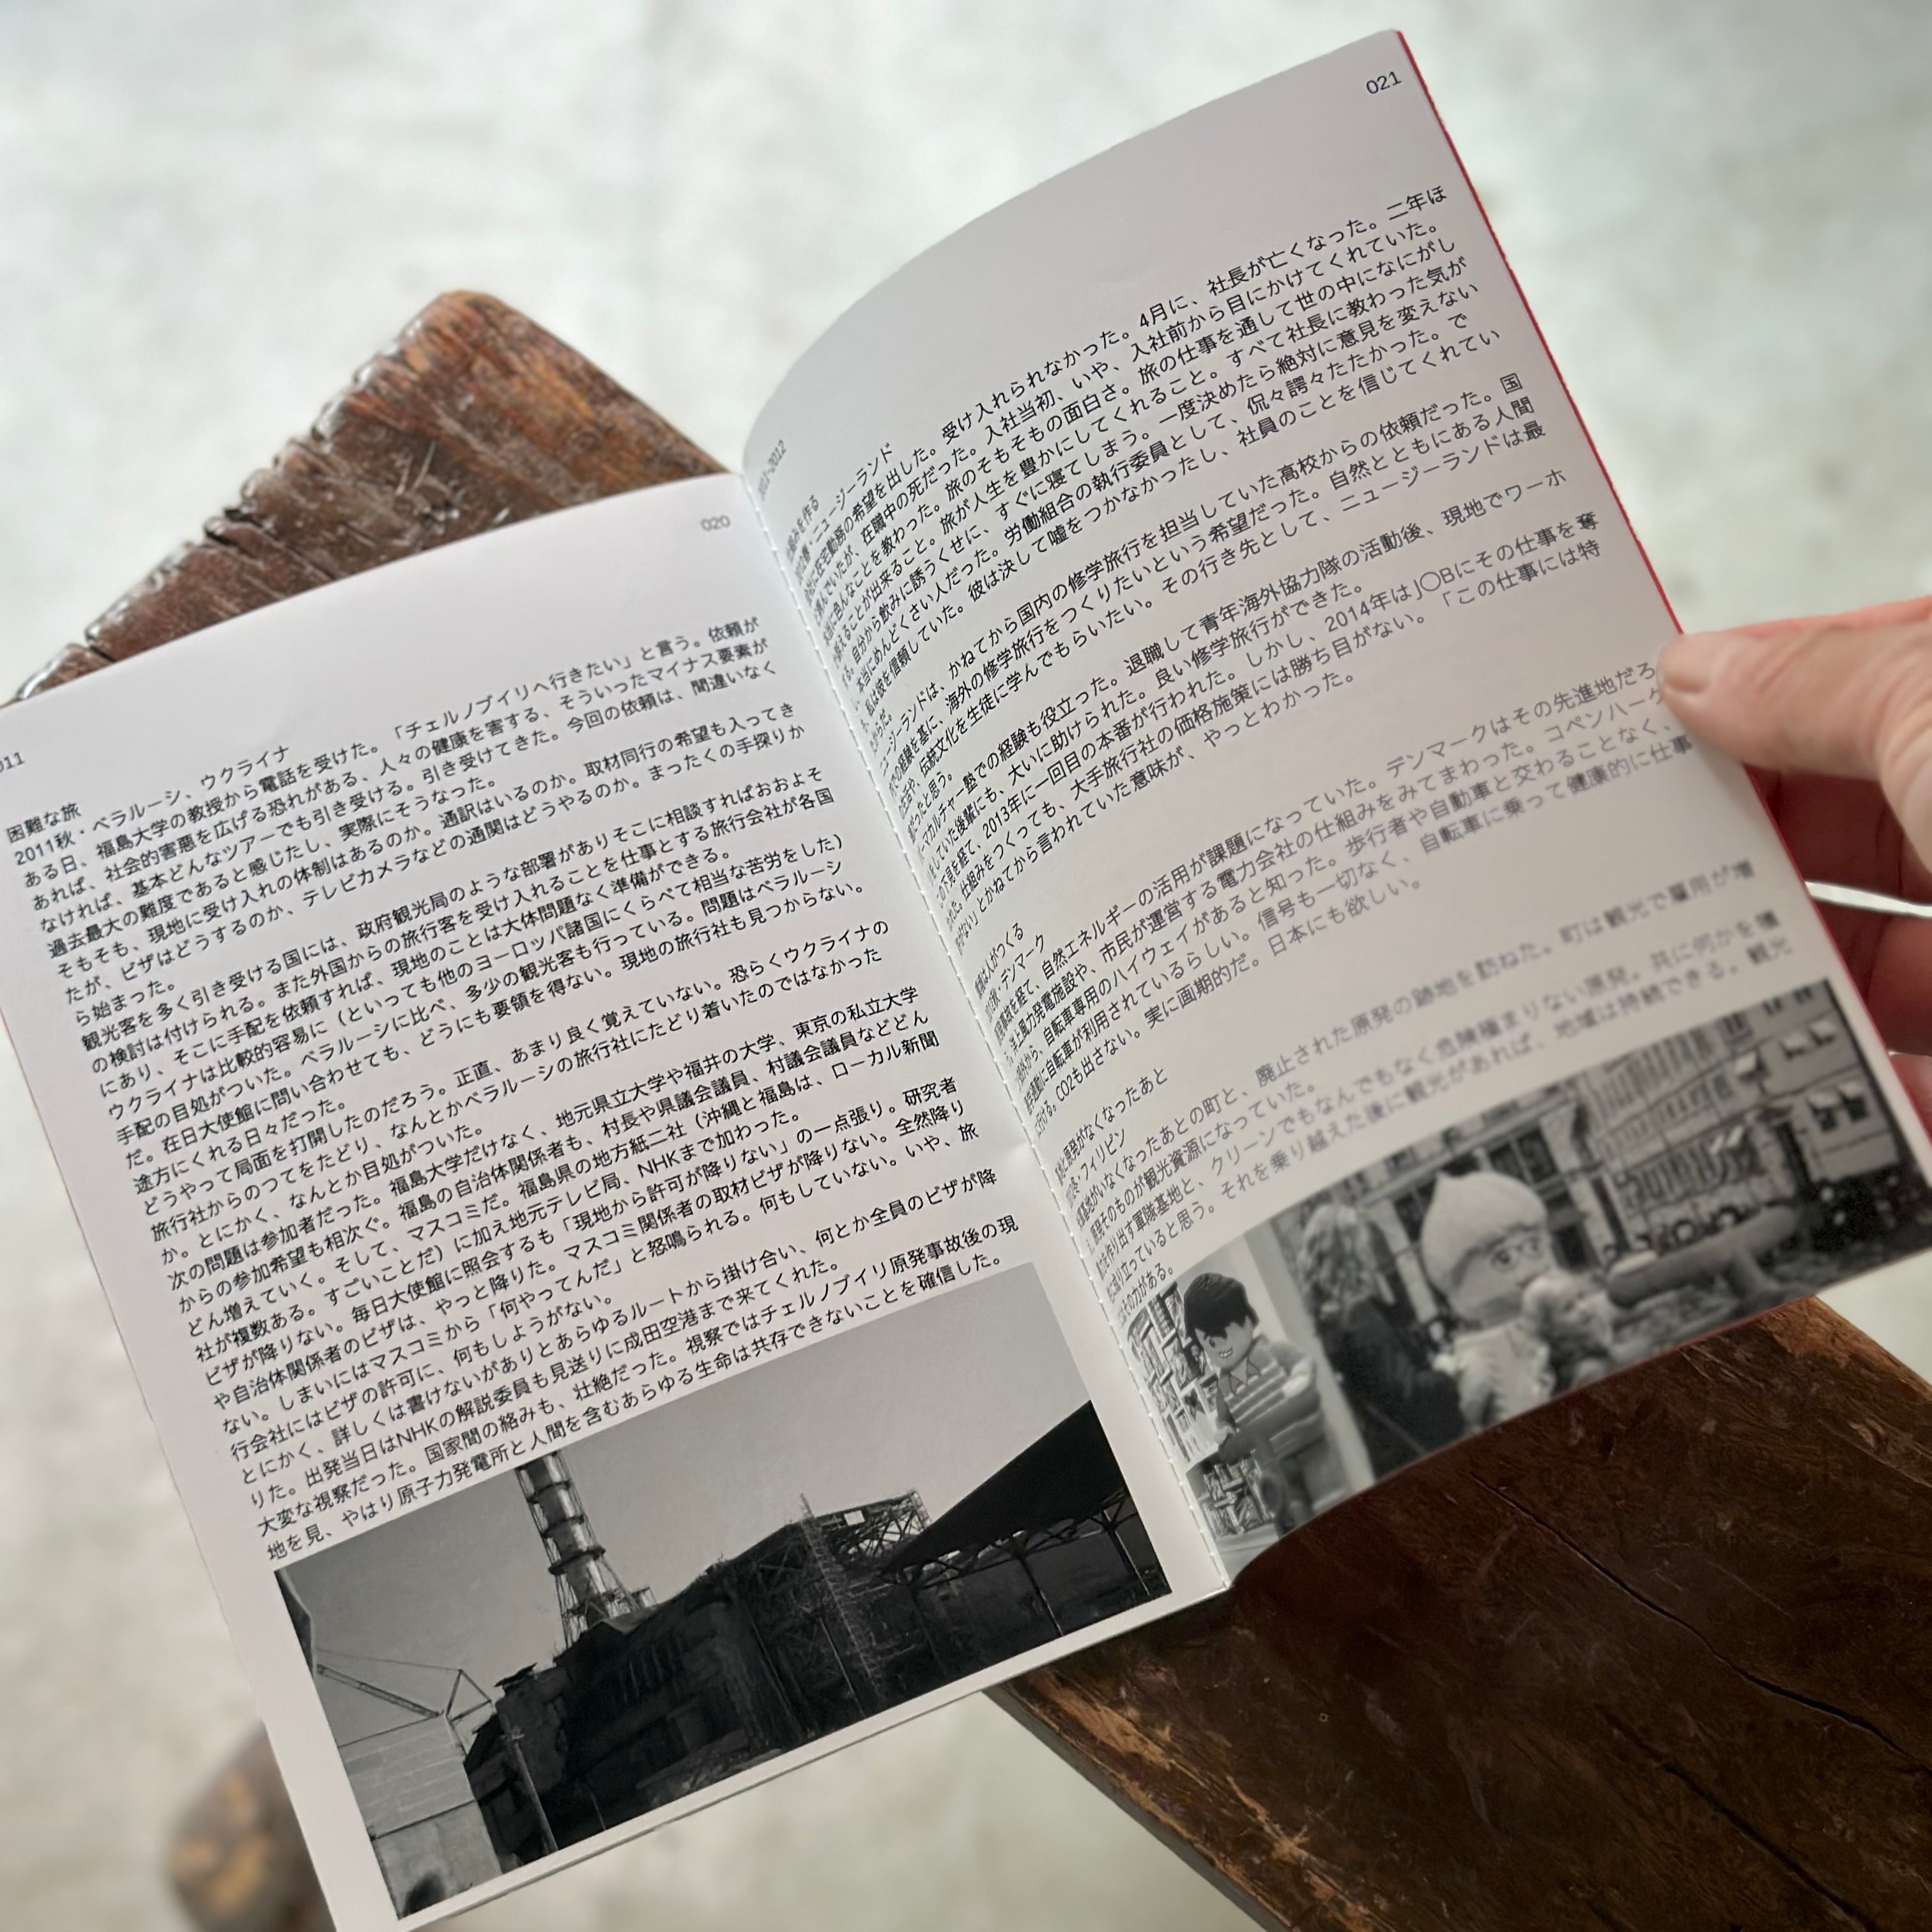 020
011
困難な旅
2011秋・ベラルーシ、ウクライナ
ある日、福島大学の教授から電話を受けた。「チェルノブイリへ行きたい」と言う。依頼が
あれば、社会的害悪を広げる恐れがある、人々の健康を害する、そういったマイナス要素が
なければ、基本どんなツアーでも引き受ける。引き受けてきた。今回の依頼は、間違いなく
過去最大の難度であると感じたし、実際にそうなった。
そもそも、現地に受け入れの体制はあるのか。通訳はいるのか。取材同行の希望も入ってき
たが、ビザはどうするのか、テレビカメラなどの通関はどうやるのか。まったくの手探りか
ら始まった。
観光客を多く引き受ける国には、政府観光局のような部署がありそこに相談すればおおよそ
の検討は付けられる。また外国からの旅行客を受け入れることを仕事とする旅行会社が各国
にあり、そこに手配を依頼すれば、現地のことは大体問題なく準備ができる。
ウクライナは比較的容易に（といっても他のヨーロッパ諸国にくらべて相当な苦労をした）
手配の目処がついた。ベラルーシに比べ、多少の観光客も行っている。問題はベラルーシ
だ。在日大使館に問い合わせても、どうにも要領を得ない。現地の旅行社も見つからない。
途方にくれる日々だった。
どうやって局面を打開したのだろう。正直、あまり良く覚えていない。恐らくウクライナの
旅行社からのつてをたどり、なんとかベラルーシの旅行社にたどり着いたのではなかった
か。とにかく、なんとか目処がついた。
次の問題は参加者だった。福島大学だけなく、地元県立大学や福井の大学、東京の私立大学
からの参加希望も相次ぐ。福島の自治体関係者も、村長や県議会議員、村議会議員などどん
どん増えていく。そして、マスコミだ。福島県の地方紙二社（沖縄と福島は、ローカル新聞
社が複数ある。すごいことだ）に加え地元テレビ局、NHKまで加わった。
ビザが降りない。毎日大使館に照会するも「現地から許可が降りない」の一点張り。研究者
や自治体関係者のビザは、やっと降りた。マスコミ関係者の取材ビザが降りない。全然降り
ない。しまいにはマスコミから「何やってんだ」と怒鳴られる。何もしていない。いや、旅
行会社にはビザの許可に、何もしようがない。
とにかく、詳しくは書けないがありとあらゆるルートから掛け合い、何とか全員のビザが降
りた。出発当日はNHKの解説委員も見送りに成田空港まで来てくれた。
大変な視察だった。国家間の絡みも、壮絶だった。視察ではチェルノブイリ原発事故後の現
地を見、やはり原子力発電所と人間を含むあらゆる生命は共存できないことを確信した。
021
2011-2012
組みを作る
ニュージーランド
に在宅勤務の希望を出した。受け入れられなかった。4月に、社長が亡くなった。二年ほ
ていたが、在職中の死だった。入社当初、いや、入社前から目にかけてくれていた。
に色んなことを教わった。旅のそもそもの面白さ。旅の仕事を通して世の中になにがし
訴えることが出来ること。旅が人生を豊かにしてくれること。すべて社長に教わった気が
る。自分から飲みに誘うくせに、すぐに寝てしまう。一度決めたら絶対に意見を変えない
本当にめんどくさい人だった。労働組合の執行委員として、侃々諤々たたかった。で
私は彼を信頼していた。彼は決して嘘をつかなかったし、社員のことを信じてくれてい
からだ。
ニュージーランドは、かねてから国内の修学旅行を担当していた高校からの依頼だった。国
での経験を基に、海外の修学旅行をつくりたいという希望だった。自然とともにある人間
生活や、伝統文化を生徒に学んでもらいたい。その行き先として、ニュージーランドは最
だったと思う。
マカルチャー塾での経験も役立った。退職して青年海外協力隊の活動後、現地でワーホ
をしていた後輩にも、大いに助けられた。良い修学旅行ができた。
の下見を経て、2013年に一回目の本番が行われた。しかし、2014年はJ〇Bにその仕事を奪
れた。仕組みをつくっても、大手旅行社の価格施策には勝ち目がない。「この仕事には特
がない」とかねてから言われていた意味が、やっとわかった。
は人がつくる
秋・デンマーク
事故を経て、自然エネルギーの活用が課題になっていた。デンマークはその先進地だろ
洋上風力発電施設や、市民が運営する電力会社の仕組みをみてまわった。コペンハーゲ
郊外から、自転車専用のハイウェイがあると知った。歩行者や自動車と交わることなく、
に自転車が利用されているらしい。信号も一切なく、自転車に乗って健康的に仕事
に行ける。CO2も出さない。実に画期的だ。日本にも欲しい。
と原発がなくなったあと
冬・フィリピン
基地がいなくなったあとの町と、廃止された原発の跡地を訪ねた。町は観光で雇用が増
、原発そのものが観光資源になっていた。
を作り出す軍隊基地と、クリーンでもなんでもなく危険極まりない原発。共に何かを犠
に成り立っていると思う。それを乗り越えた後に観光があれば、地域は持続できる。観光
はその力がある。